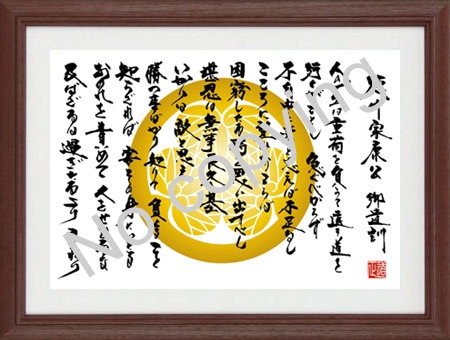 徳川家康公 御遺訓
人の一生は重荷を負うて遠き道を
行くがごとし 急ぐべからず
不自由を常と思へば不足なし
こころに望おこらば
困窮したる時を思ひ出すべし
堪忍は無事長久の基
いかりは敵と思へ
勝つ事ばかり知りて 負くることを
知らざれば 害その身にいたる
おのれを責めて 人をせむるな
及ばざるは過ぎたるより まされり
No copying